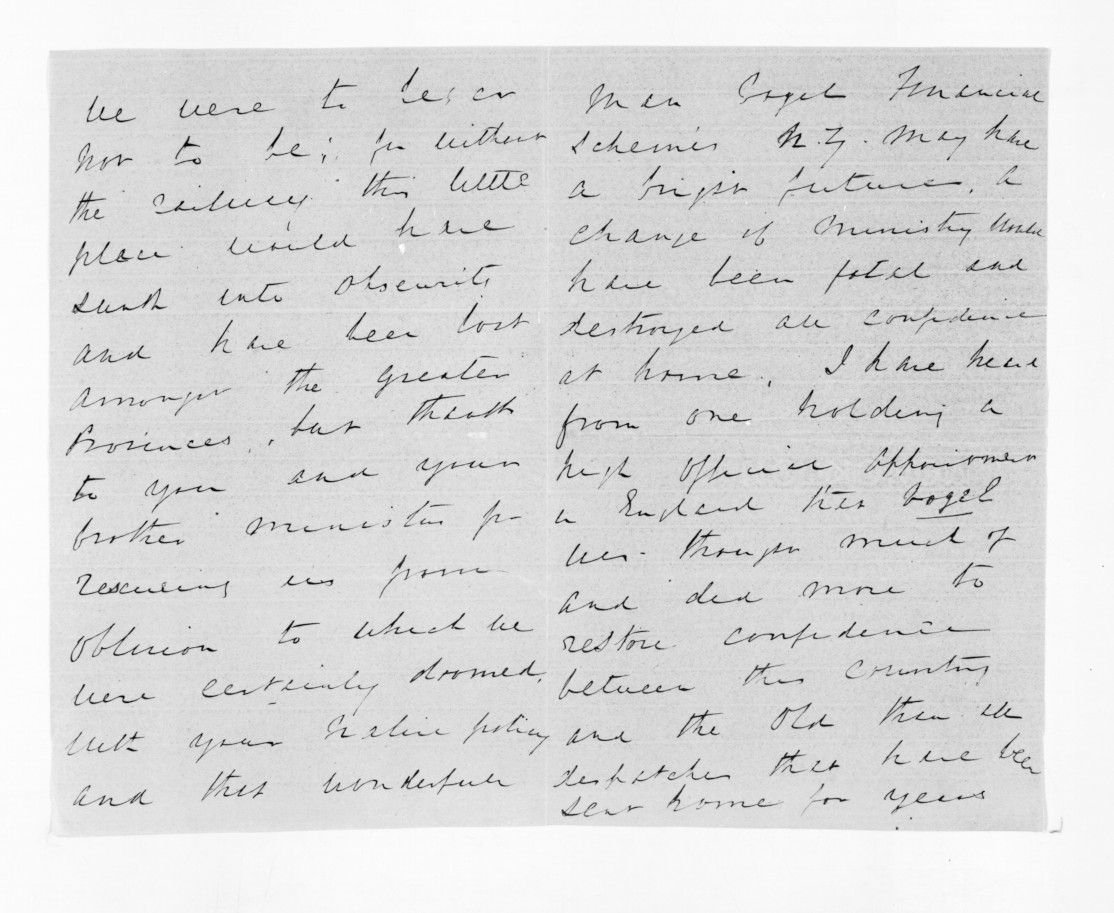 we were to be or
not to be; for without
the railway this little
place would have
sunk into obscurity
and have been lost
amongst the greater
Provinces, but thanks
to you and your
brother ministers for
rescuing us from
oblivion to which we
were certainly doomed,
with your Native policy
and that wonderful
man Vogel Financial
schemes N.Z. may have
a bright future, a
change of Ministry would
have been fatal and
destroyed all confidence
at home, I have heard
from one holding a
high official appointment
in England that Vogel
was thought much of
and did more to
restore confidence
between this country
and the Old than all
despatches that have been
sent home for years